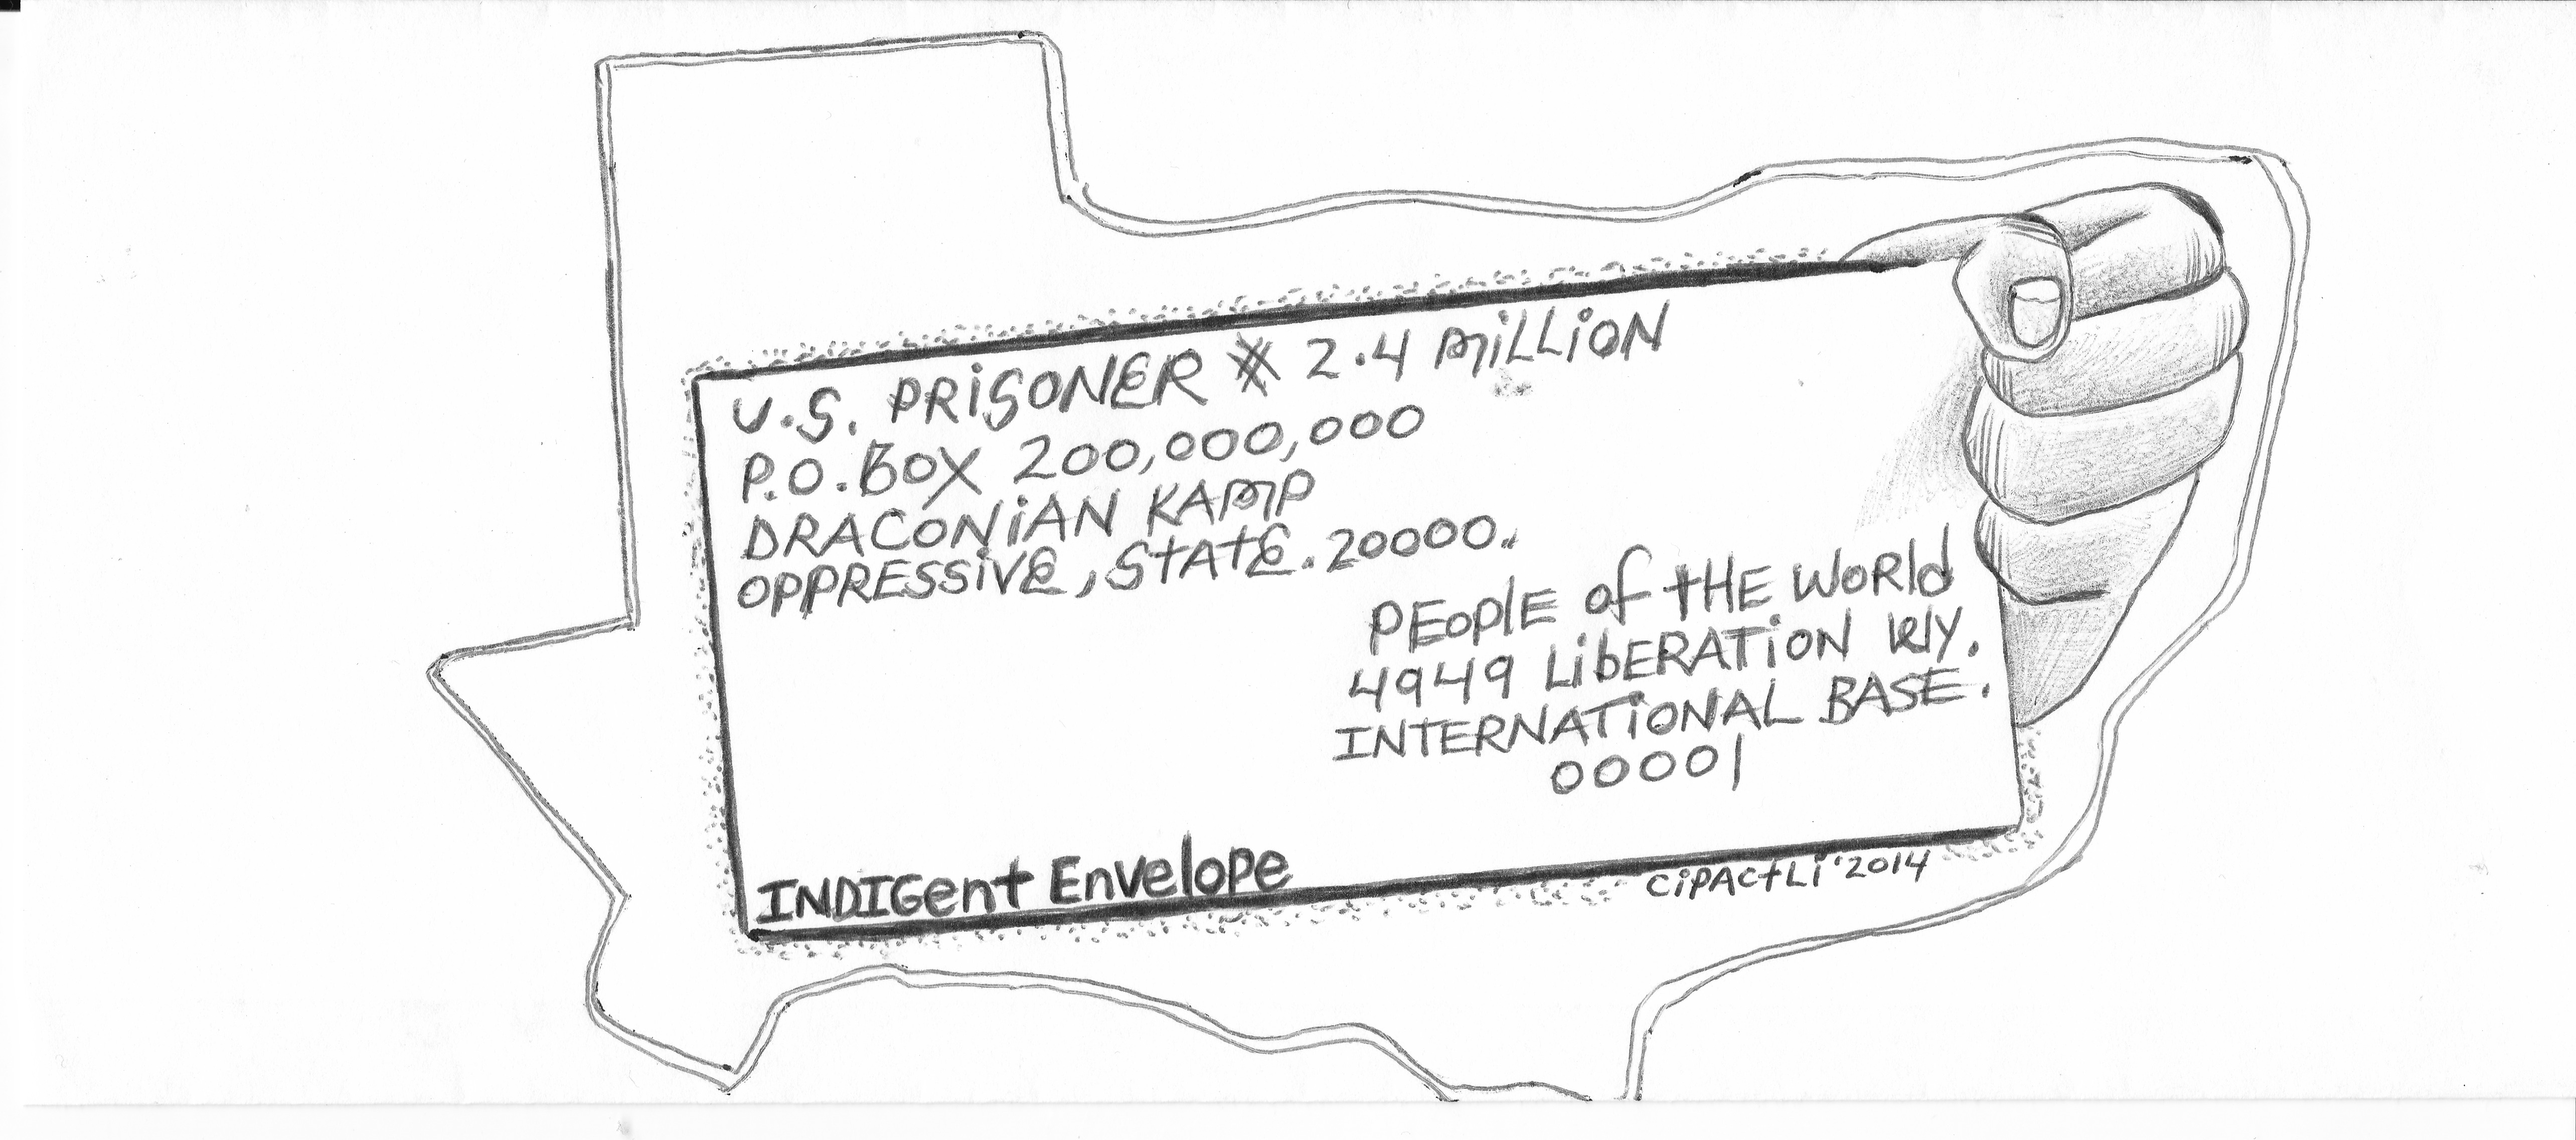 U.S. PRiSONER # 2.4 MiLLiON
P.O. BOX 200,000,000
DRACONiAN KAMP
OPPRESSiVE, StAtE. 20000..
PEOplE of tHE WoRld
4949 LibERATiON WY.
INTERNATiONAL BASE.
00001
INDIGent Envelope
CiPACtLi '2014